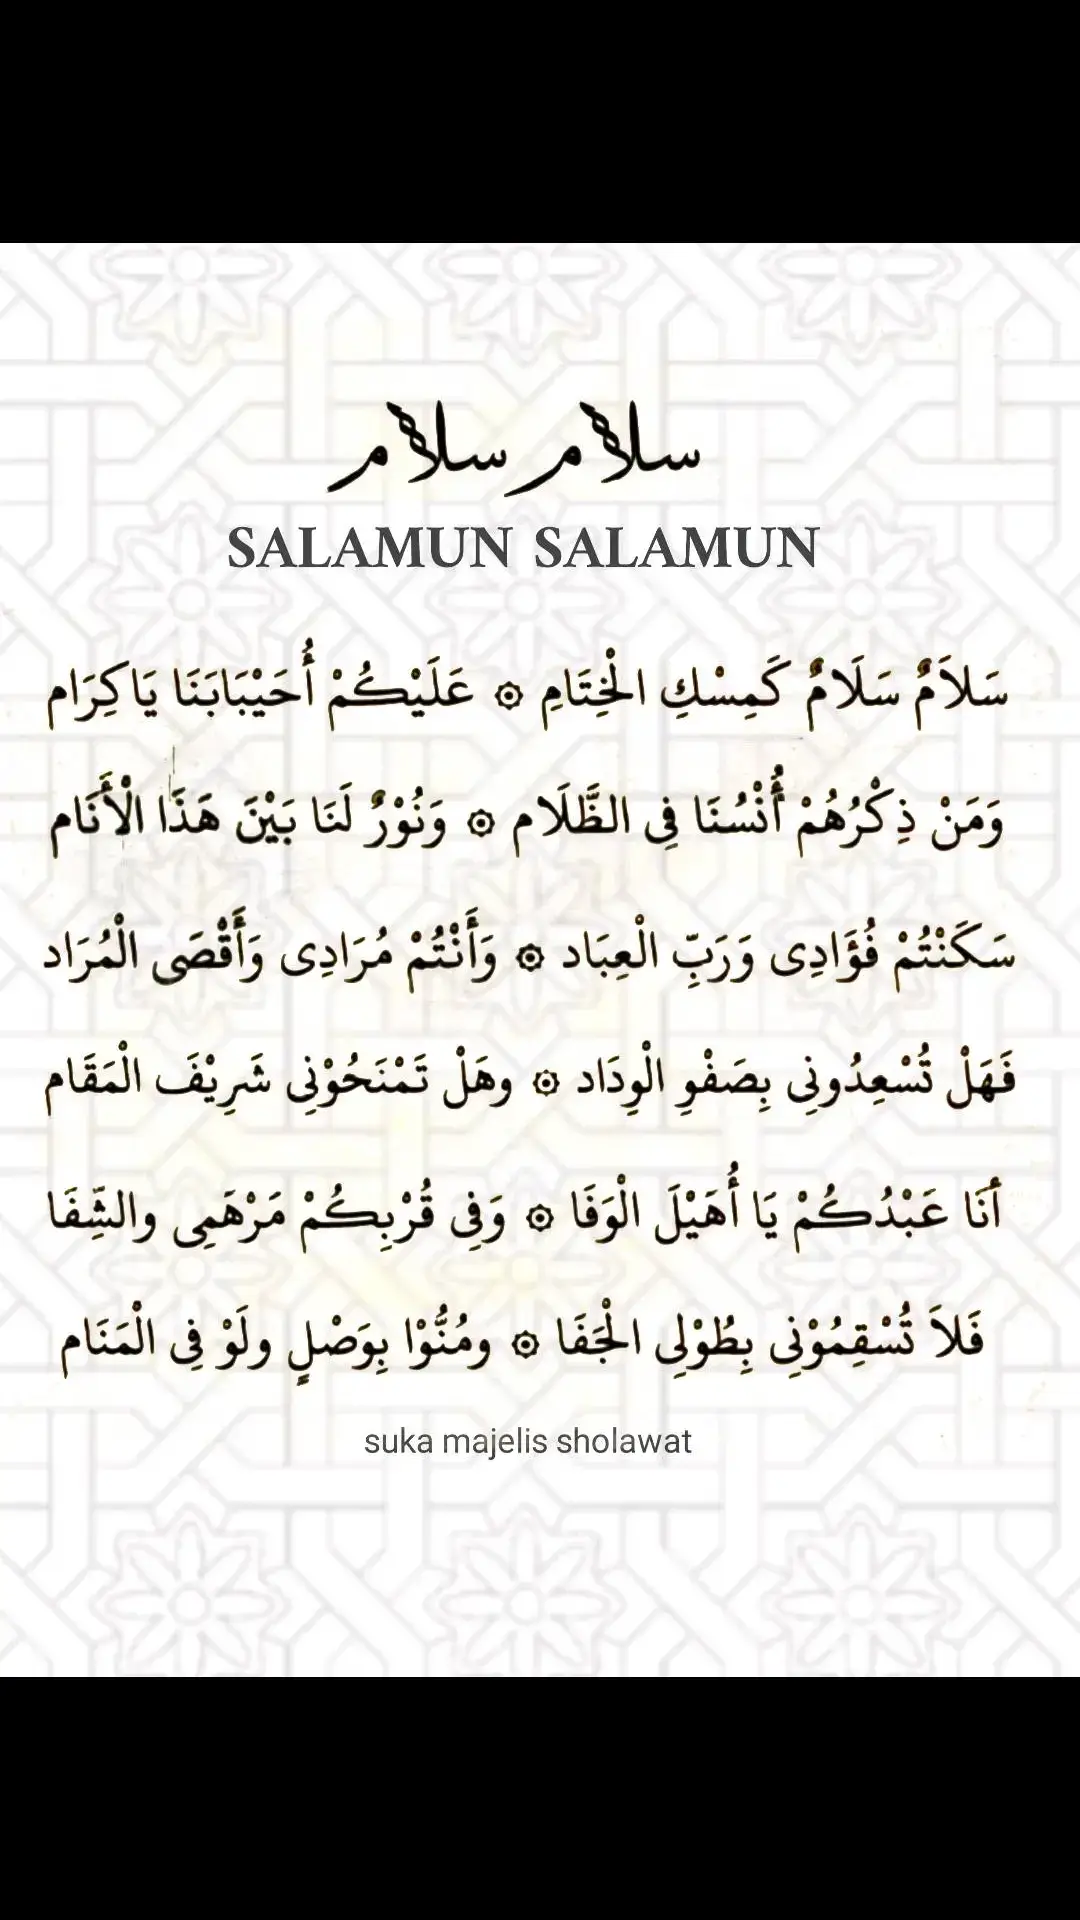 سلام سلام
SALAMUN SALAMUN
سَلاَمٌ سَلَامٌ كَمِسْكِ الْخِتَامِ ۞ عَلَيْكُمْ أُحَيْبَابَنَا يَاكِرَام
وَمَنْ ذِكْرُهُمْ أُنْسُنَا فِى الظَّلَام ۞ وَنُوْرٌ لَنَا بَيْنَ هَذَا الْأَنَام
سَكَنْتُمْ فُؤَادِى وَرَبِّ الْعِبَاد ۞ وَأَنْتُمْ مُرَادِى وَأَقْصَى الْمُرَاد
فَهَلْ تُسْعِدُونِى بِصَفْوِ الْوِدَاد ۞ وهَلْ تَمْنَحُوْنِى شَرِيْفَ الْمَقَام
أنَا عَبْدُكُمْ يَا أُهَيْلَ الْوَفَا ۞ وَفِى قُرْبِكُمْ مَرْهَمِى والشِّفَا
فَلاَ تُسْقِمُوْنِى بِطُوْلِى الْجَفَا ۞ ومُنُّوْا بِوَصْلٍ ولَوْ فِى الْمَنَام
suka majelis sholawat